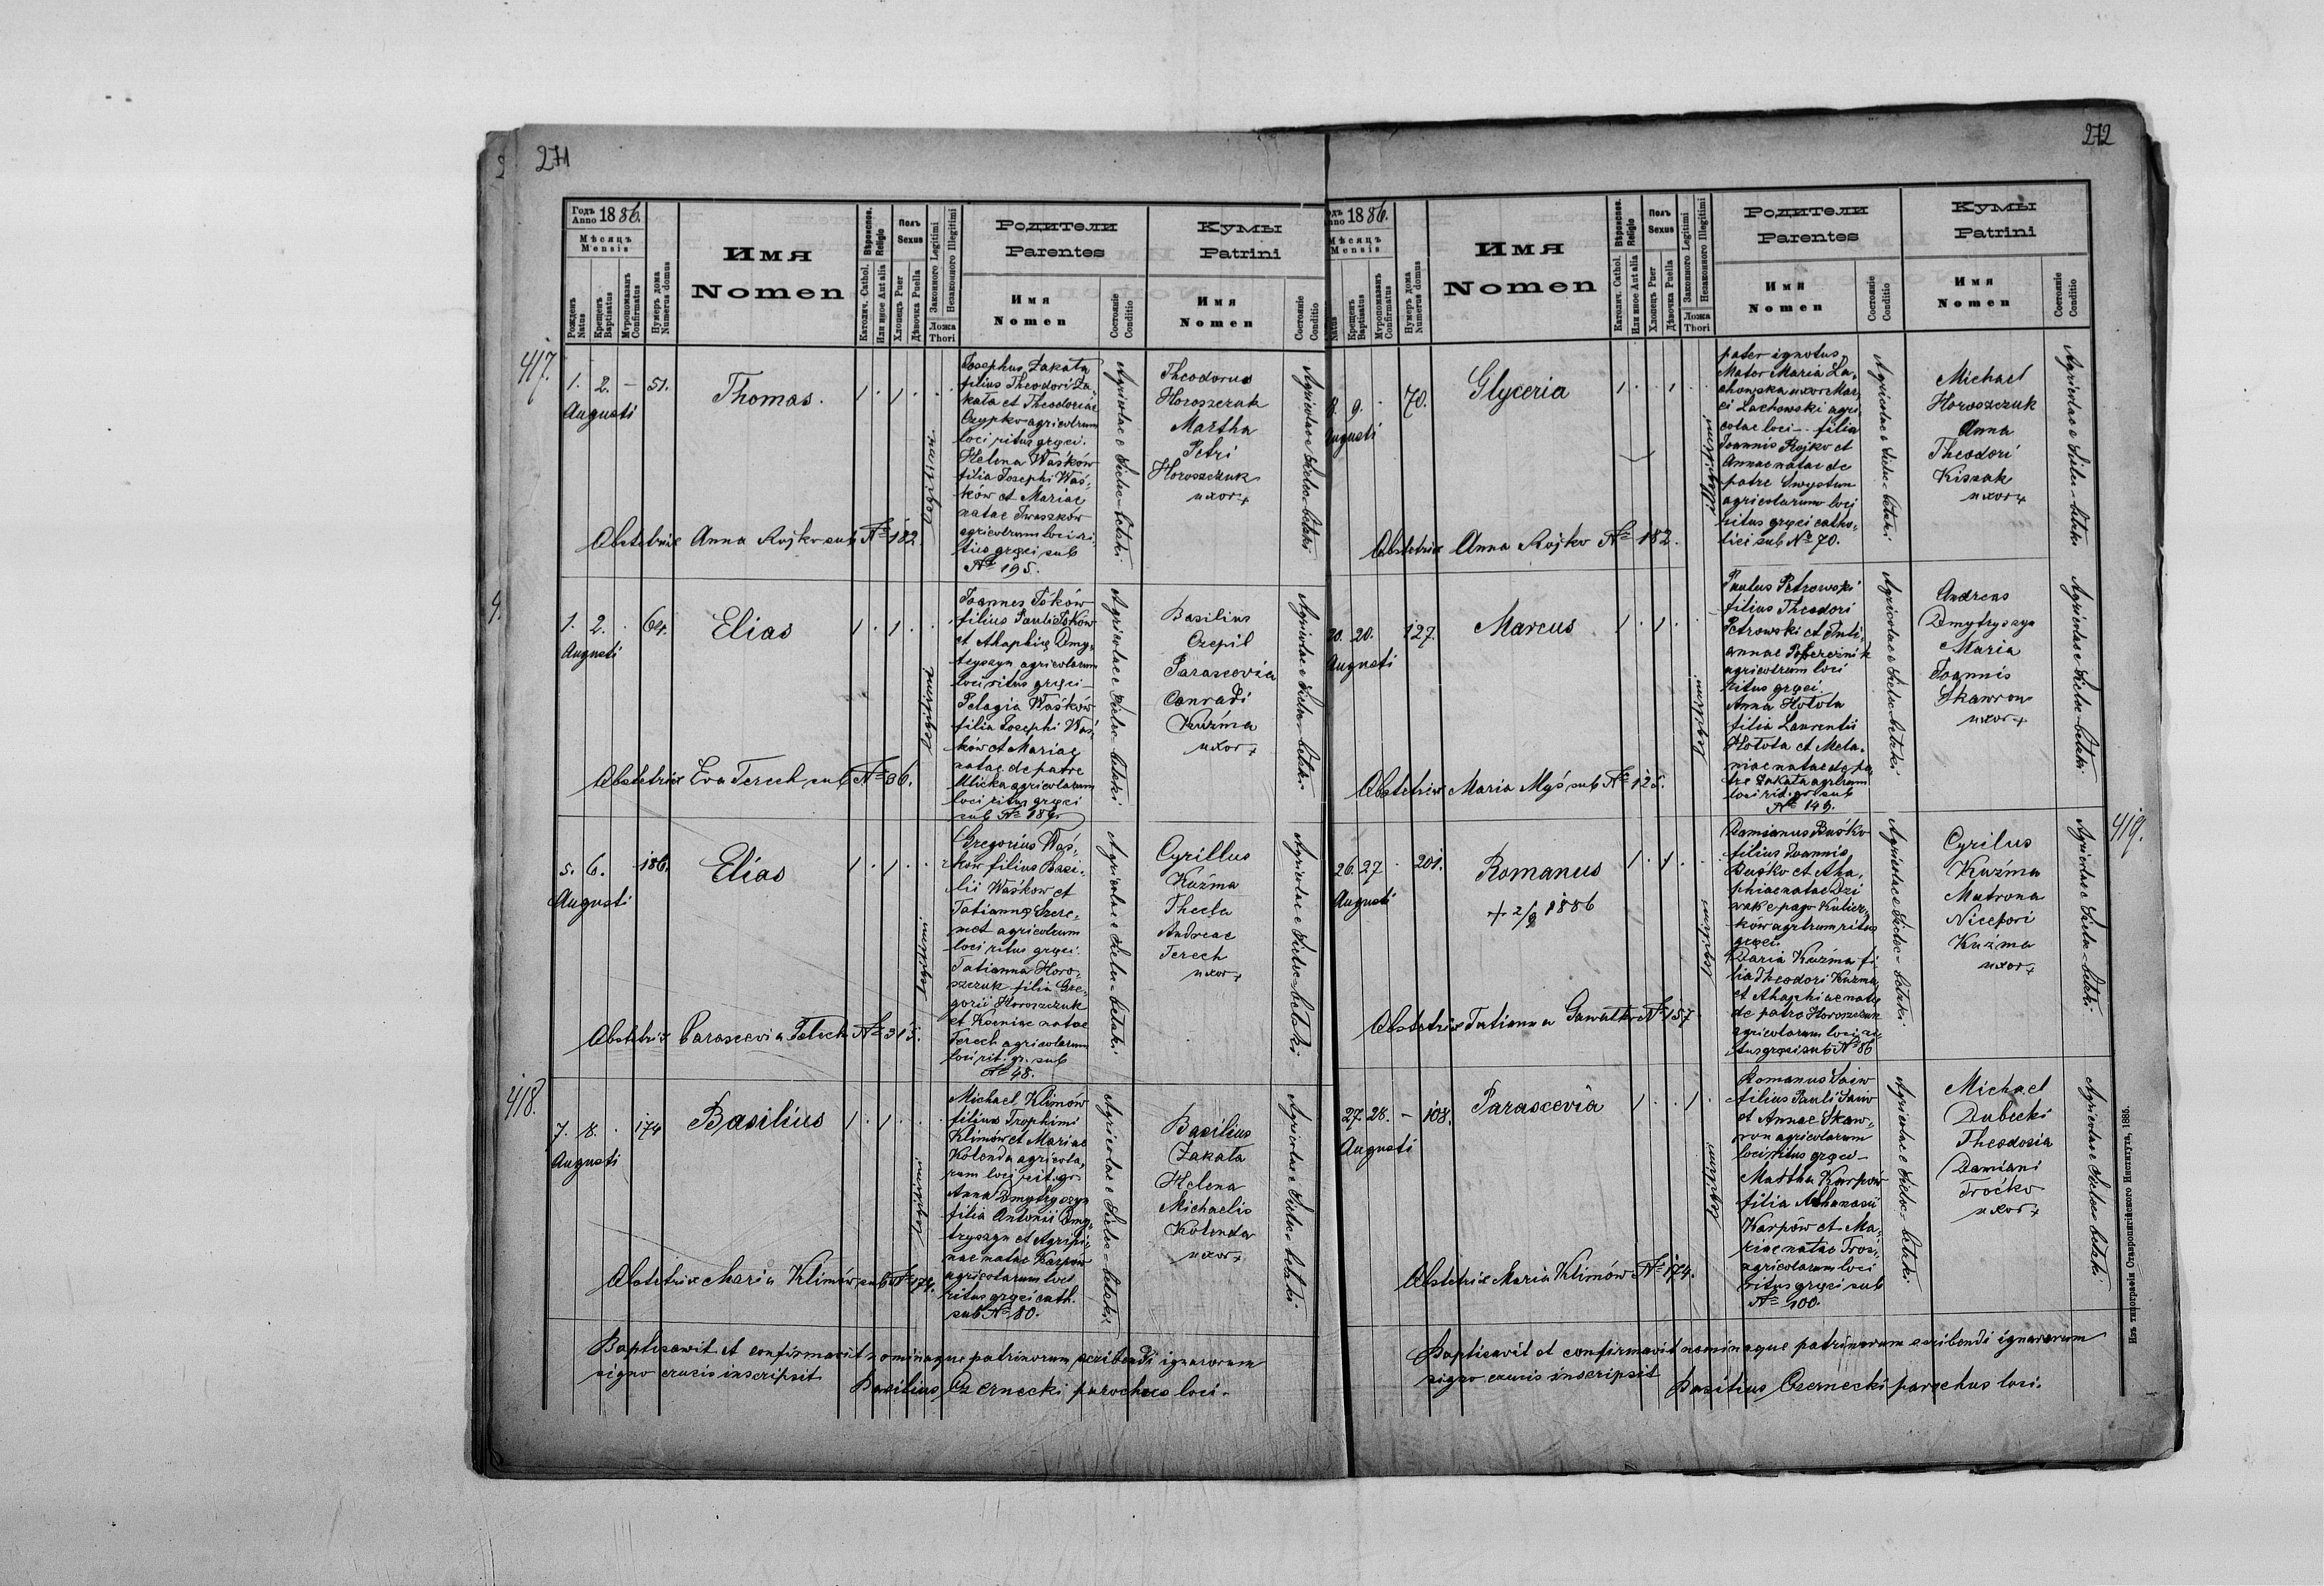 271
Годъ Anno 1886.
Мѣсяцъ Mensis
Рожденъ Natus
Крещенъ Baptisatus
Мѵропомазанъ Confirmatus
Нумеръ дома Numerus domus
Имя Nomen
Вѣроиспов. Religio
Католич. Cathol.
Или иное Aut alia
Полъ Sexus
Хлопець Puer
Дѣвочка Puella
Законного Legitimi
Незаконного Illegitimi
Ложа Thori
Родители Parentes
Имя Nomen
Состояніе Conditio
Кумы Patrini
Имя Nomen
Состояніе Conditio
417.
1. 2. — 51.
Augusti
Thomas.
1 . 1 . .
legitimi
Josephus Zakała
filius Theodori Za„
kała et Theodoriae
Czypko agricolrum
loci ritus gręci.
Helena Waśków
filia Josephi Waś„
ków et Mariae
natae Iwaszków
agricolrum loci ri„
tus gręci sub
№ 195.
Agricolae e Sielec-bełzki
Theodorus
Horoszczuk
Martha
Petri
Horoszczuk
uxor +
Agricolae e Sielec-bełzki
Obstetrix Anna Rojko sub № 182.
1. 2. . 64.
Augusti
Elias
1 . 1 . .
legitimi
Joannes Jśków
filius Pauli Jśków
et Ahaphię Dmy„
tryszyn agricolarum
loci ritus gręci —
Pelagia Waśków
filia Josephi Waś„
ków et Mariae
natae de patre
Ulicka agricolarum
loci ritus gręci
sub № 189.
Agricolae e Sielec-bełzki
Basilius
Czepil
Parascevia
Conradi
Kuźma
uxor +
Agricolae e Sielec-bełzki
Obstetrix Eva Terech sub № 36.
5. 6. . 186.
Augusti
Elias
1 . 1 . .
legitimi
Gregorius Waś„
ków filius Basi„
lii Waśkow et
Tatianna Szere„
met agricolrum
loci ritus gręci.
Tatianna Horo„
szczuk filia Gre„
gorii Horoszczuk
et Kseniae natae
Terech agricolarum
loci rit. gr. sub
№ 48.
Agricolae e Sielec-bełzki
Cyrillus
Kuźma
Thecla
Andreae
Terech
uxor +
Agricolae e Sielec-bełzki
Obstetrix Parascevia № 315.
418.
7. 8. . 174
Augusti
Basilius
1 . 1 . .
legitimi
Michael Klimów
filius Trophimi
Klimów et Mariae
Kolenda agricola„
rum loci rit. gr.
Anna Dmytryszyn
filia Antonii Dmy„
tryszyn et Agripi„
nae natae Karpów
agricolarum loci
ritus gręci cath.
sub № 80.
Agricolae e Sielec-bełzki
Basilius
Zakała
Helena
Michaelis
Kolenda
uxor +
Agricolae e Sielec-bełzki
Obstetrix Maria Klimów sub № 174.
Baptisavit et confirmavit nominaque patrinorum scribendi ignarorum
signo crucis inscripsit Basilius Czernecki parochus loci.
272
1886.
Мѣсяцъ Mensis
Natus
Крещенъ Baptisatus
Мѵропомазанъ Confirmatus
Нумеръ дома Numerus domus
Имя Nomen
Вѣроиспов. Religio
Католич. Cathol.
Или иное Aut alia
Полъ Sexus
Хлопець Puer
Дѣвочка Puella
Законного Legitimi
Незаконного Illegitimi
Ложа Thori
Родители Parentes
Имя Nomen
Состояніе Conditio
Кумы Patrini
Имя Nomen
Состояніе Conditio
8. 9. . 70.
Augusti
Glyceria
1 . . 1 . .
illegitimi
pater ignotus„
Mater Maria La„
chowska uxor Mar„
ci Lachowski agri„
colae loci — filia
Joannis Rojko et
Annae natae de
patre Smystun
agricolarum loci
ritus gręci catho„
lici sub № 70.
Agricolae e Sielec-bełzki
Michael
Horoszczuk
Anna
Theodori
Kiszak
uxor +
Agricolae e Sielec-bełzki
Obstetrix Anna Rojko № 182.
20. 20. 127.
Augusti
Marcus
1 . 1 . .
legitimi
Paulus Petrowski
filius Theodori
Petrowski et Juli„
annae Pobereżnik
agricolrum loci
ritus gręci.
Anna Hołota
filia Laurentii
Hołota et Mela„
niae natae de pa„
tre Zakała agrlrum
loci rit. gr. sub
№ 149.
Agricolae e Sielec-bełzki
Andreas
Dmytryszyn
Maria
Joannis
Skawron
uxor +
Agricolae e Sielec-bełzki
Obstetrix Maria Myś sub № 125.
419.
26. 27 . 201.
Augusti
Romanus
+ 2/9 1886
1 . 1 . .
legitimi
Damianus Buśko
filius Joannis
Buśko et Aha„
phiae natae Dzi
wak e pago Kulicz„
ków agrlrum ritus
gręci.
Daria Kuźma fi„
lia Theodori Kuźma
et Ahaphiae natae
de patre Horoszczuk
agricolarum loci ri„
tus gręci sub № 86
Agricolae e Sielec-bełzki
Cyrilus
Kuźma
Matrona
Nicefori
Kuźma
uxor +
Agricolae e Sielec-bełzki
Obstetrix Tatianna № 157
27. 28. — 108.
Augusti
Parascevia
1 . . 1 .
legitimi
Romanus Saiw
filius Pauli Saiw
et Annae Skaw„
ron agricolarum
loci ritus gręci —
Martha Karpów
filia Athanasii
Karpów et Ma„
riae natae Troś„
agricolarum loci
ritus gręci sub
№ 100.
Agricolae e Sielec-bełzki
Michael
Dubecki
Theodosia
Damiani
Troćko
uxor +
Agricolae e Sielec-bełzki
Obstetrix Maria Klimów № 174.
Baptisavit et confirmavit nominaque patrinorum scribendi ignarorum
signo crucis inscripsit Basilius Czernecki parochus loci.
Изъ типографіи Ставропигійского Института, 1885.